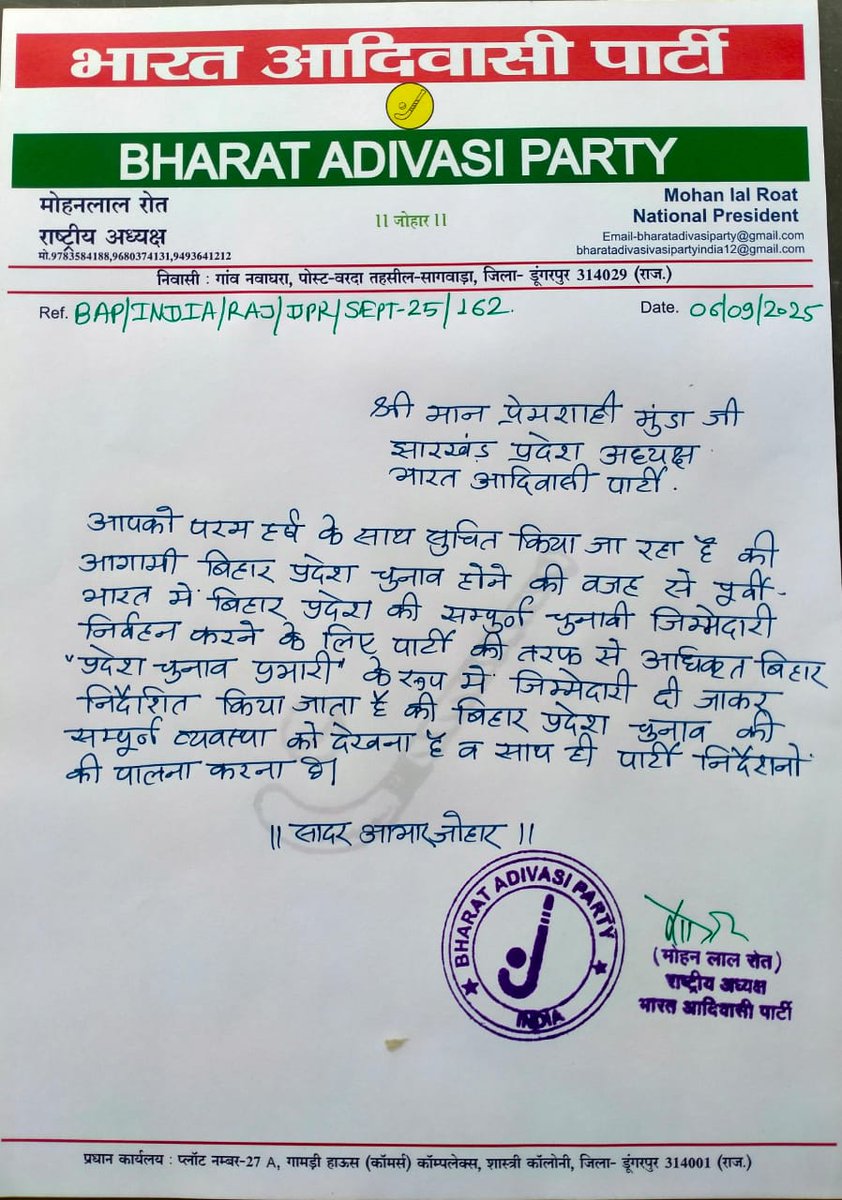 भारत आदिवासी पार्टी
BHARAT ADIVASI PARTY
मोहनलाल रोत
राष्ट्रीय अध्यक्ष
मो.9783584188,9680374131,9493641212
।। जोहार ।।
Mohan lal Roat
National President
Email-bharatadivasiparty@gmail.com
bharatadivasivasipartyindia12@gmail.com
निवासी : गांव नवाघरा, पोस्ट-वरदा तहसील-सागवाड़ा, जिला- डूंगरपुर 314029 (राज.)
Ref. BAP/INDIA/RAJ/DPR/SEPT-25/162.
Date. 06/09/2025
श्री मान प्रेमशाही मुंडा जी
झारखंड प्रदेश अध्यक्ष
भारत आदिवासी पार्टी.
आपको परम हर्ष के साथ सुचित किया जा रहा है की
आगामी बिहार प्रदेश चुनाव होने की वजह से पूर्वी-
भारत में बिहार प्रदेश की सम्पुर्ण चुनावी जिम्मेदारी
निर्वहन करने के लिए पार्टी की तरफ से अधिकृत बिहार
"प्रदेश चुनाव प्रभारी" के रूप में जिम्मेदारी दी जाकर
निर्देशित किया जाता है की बिहार प्रदेश चुनाव की
सम्पूर्ण व्यवस्था को देखना है व साथ ही पार्टी निर्देशनों
की पालना करना है।
।। सादर आभार,जोहार ।।
BHARAT ADIVASI PARTY
INDIA
(मोहन लाल रोत)
राष्ट्रीय अध्यक्ष
भारत आदिवासी पार्टी
प्रधान कार्यालय : प्लॉट नम्बर-27 A, गामड़ी हाऊस (कॉमर्स) कॉम्पलेक्स, शास्त्री कॉलोनी, जिला- डूंगरपुर 314001 (राज.)